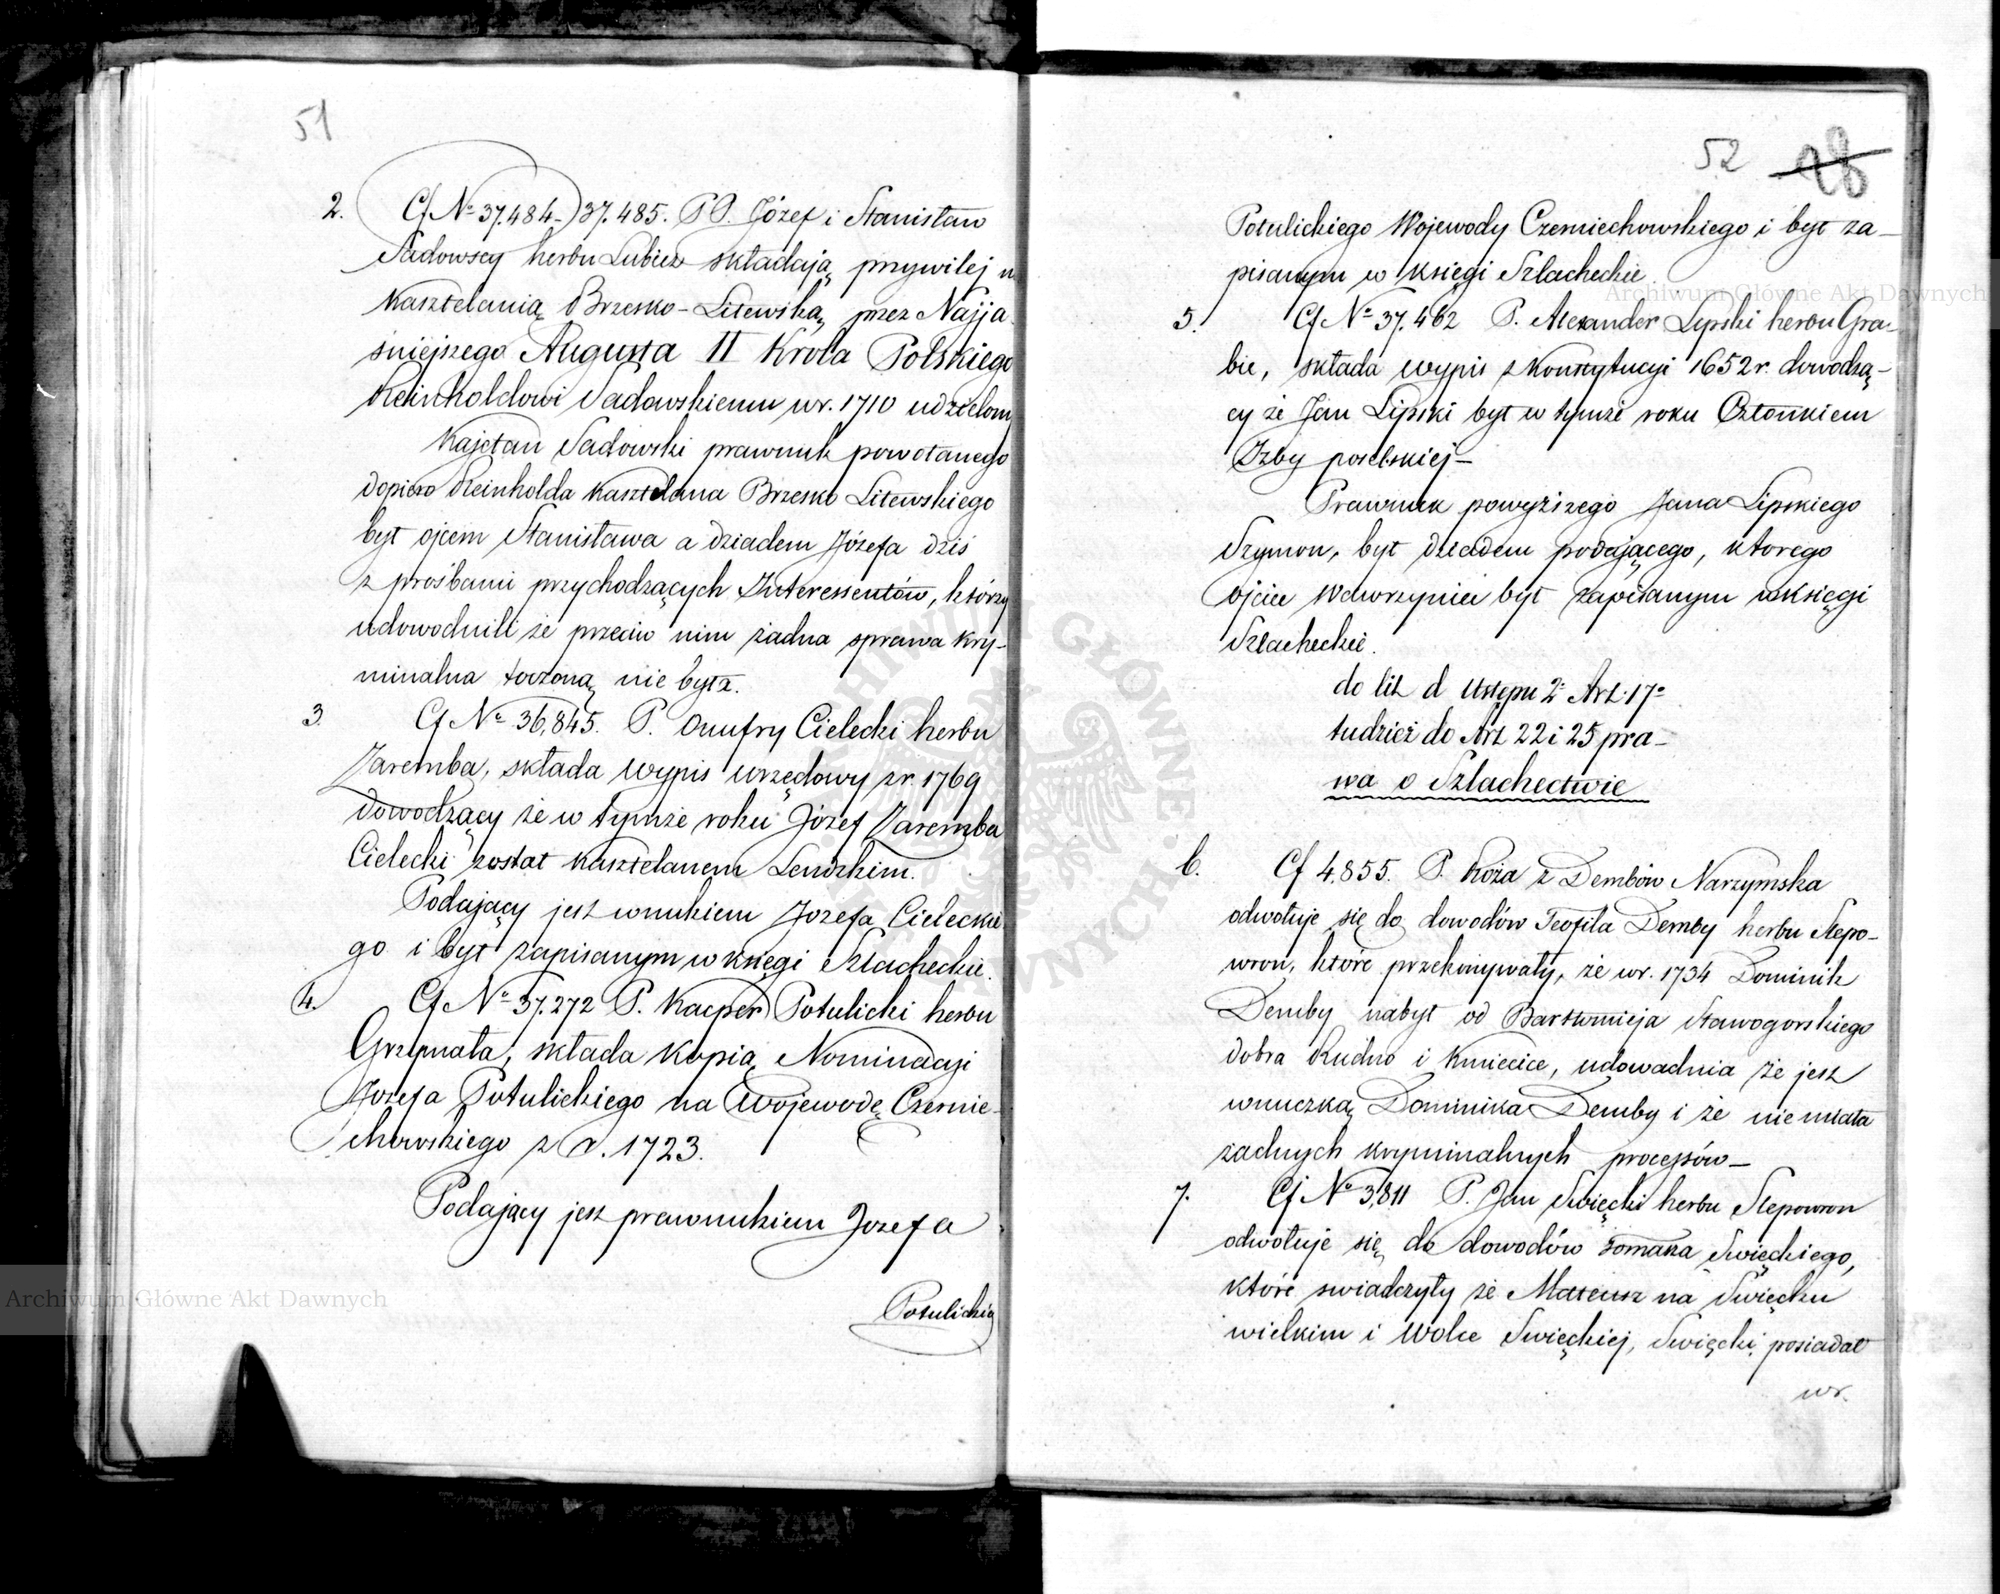 51
2. Cf Nº 37.484-37.485. PP. Józef i Stanisław
Sadowscy herbu Lubicz składają przywilej n
kasztelanią Brzesko-Litewską przez Najja
śniejszego Augusta II Króla Polskiego
Reinholdowi Sadowskiemu w r. 1710 udzielony
Kajetan Sadowski prawnuk powołanego
dopiero Reinholda kasztelana Brzesko Litewskiego
był ojcem Stanisława a dziadem Józefa dziś
z prośbami przychodzących Interessentów, którzy
udowodnili że przeciw nim żadna sprawa kry-
minalna toczoną nie była.
3. Cf Nº 36,845. P. Onufry Cielecki herbu
Zaremba, składa wypis urzędowy z r. 1769
dowodzący że w tymże roku Józef Zaremba
Cielecki został kasztelanem Lendzkim.
Podający jest wnukiem Józefa Cieleckie
go i był zapisanym w księgi Szlacheckie.
4. Cf Nº 37.272 P. Kacper Potulicki herbu
Grzymała, składa kopią Nominacyi
Józefa Potulickiego na Wojewodę Czernie-
chowskiego z r. 1723.
Podający jest prawnukiem Józefa
Potulickieg
52 28
Potulickiego Wojewody Czerniechowskiego i był za-
pisanym w księgi Szlacheckie.
5. Cf Nº 37.462 P. Alexander Lipski herbu Gra-
bie, składa wypis z Konstytucyi 1652 r. dowodzą-
cy że Jan Lipski był w tymże roku Członkiem
Izby poselskiej-
Prawnuk powyższego Jana Lipskiego
Szymon, był dziadem podającego, którego
ojciec Wawrzyniec był zapisanym w księgi
Szlacheckie.
do lit d Ustępu 2º Art. 17º
tudzież do Art 22 i 25 pra-
wa o Szlachectwie
6. Cf 4.855. P. Róża z Dembów Narzymska
odwołuje się do dowodów Teofila Demby herbu Slepo-
wron, które przekonywały, że w r. 1734 Dominik
Demby nabył od Bartłomieja Stawogorskiego
dobra Rudno i Kmiecice, udowadnia że jest
wnuczką Dominika Demby i że nie miała
żadnych kryminalnych processów-
7. Cf Nº 3,811 P. Jan Swięcki herbu Slepowron
odwołuje się do dowodów Tomasza Swięckiego,
które swiadczyły że Mateusz na Swięcku
wielkim i Wolce Swięckiej, Swięcki posiadał
w r.
Archiwum Główne Akt Dawnych
Archiwum Główne Akt Dawnych
ARCHIWUM GŁÓWNE AKT DAWNYCH